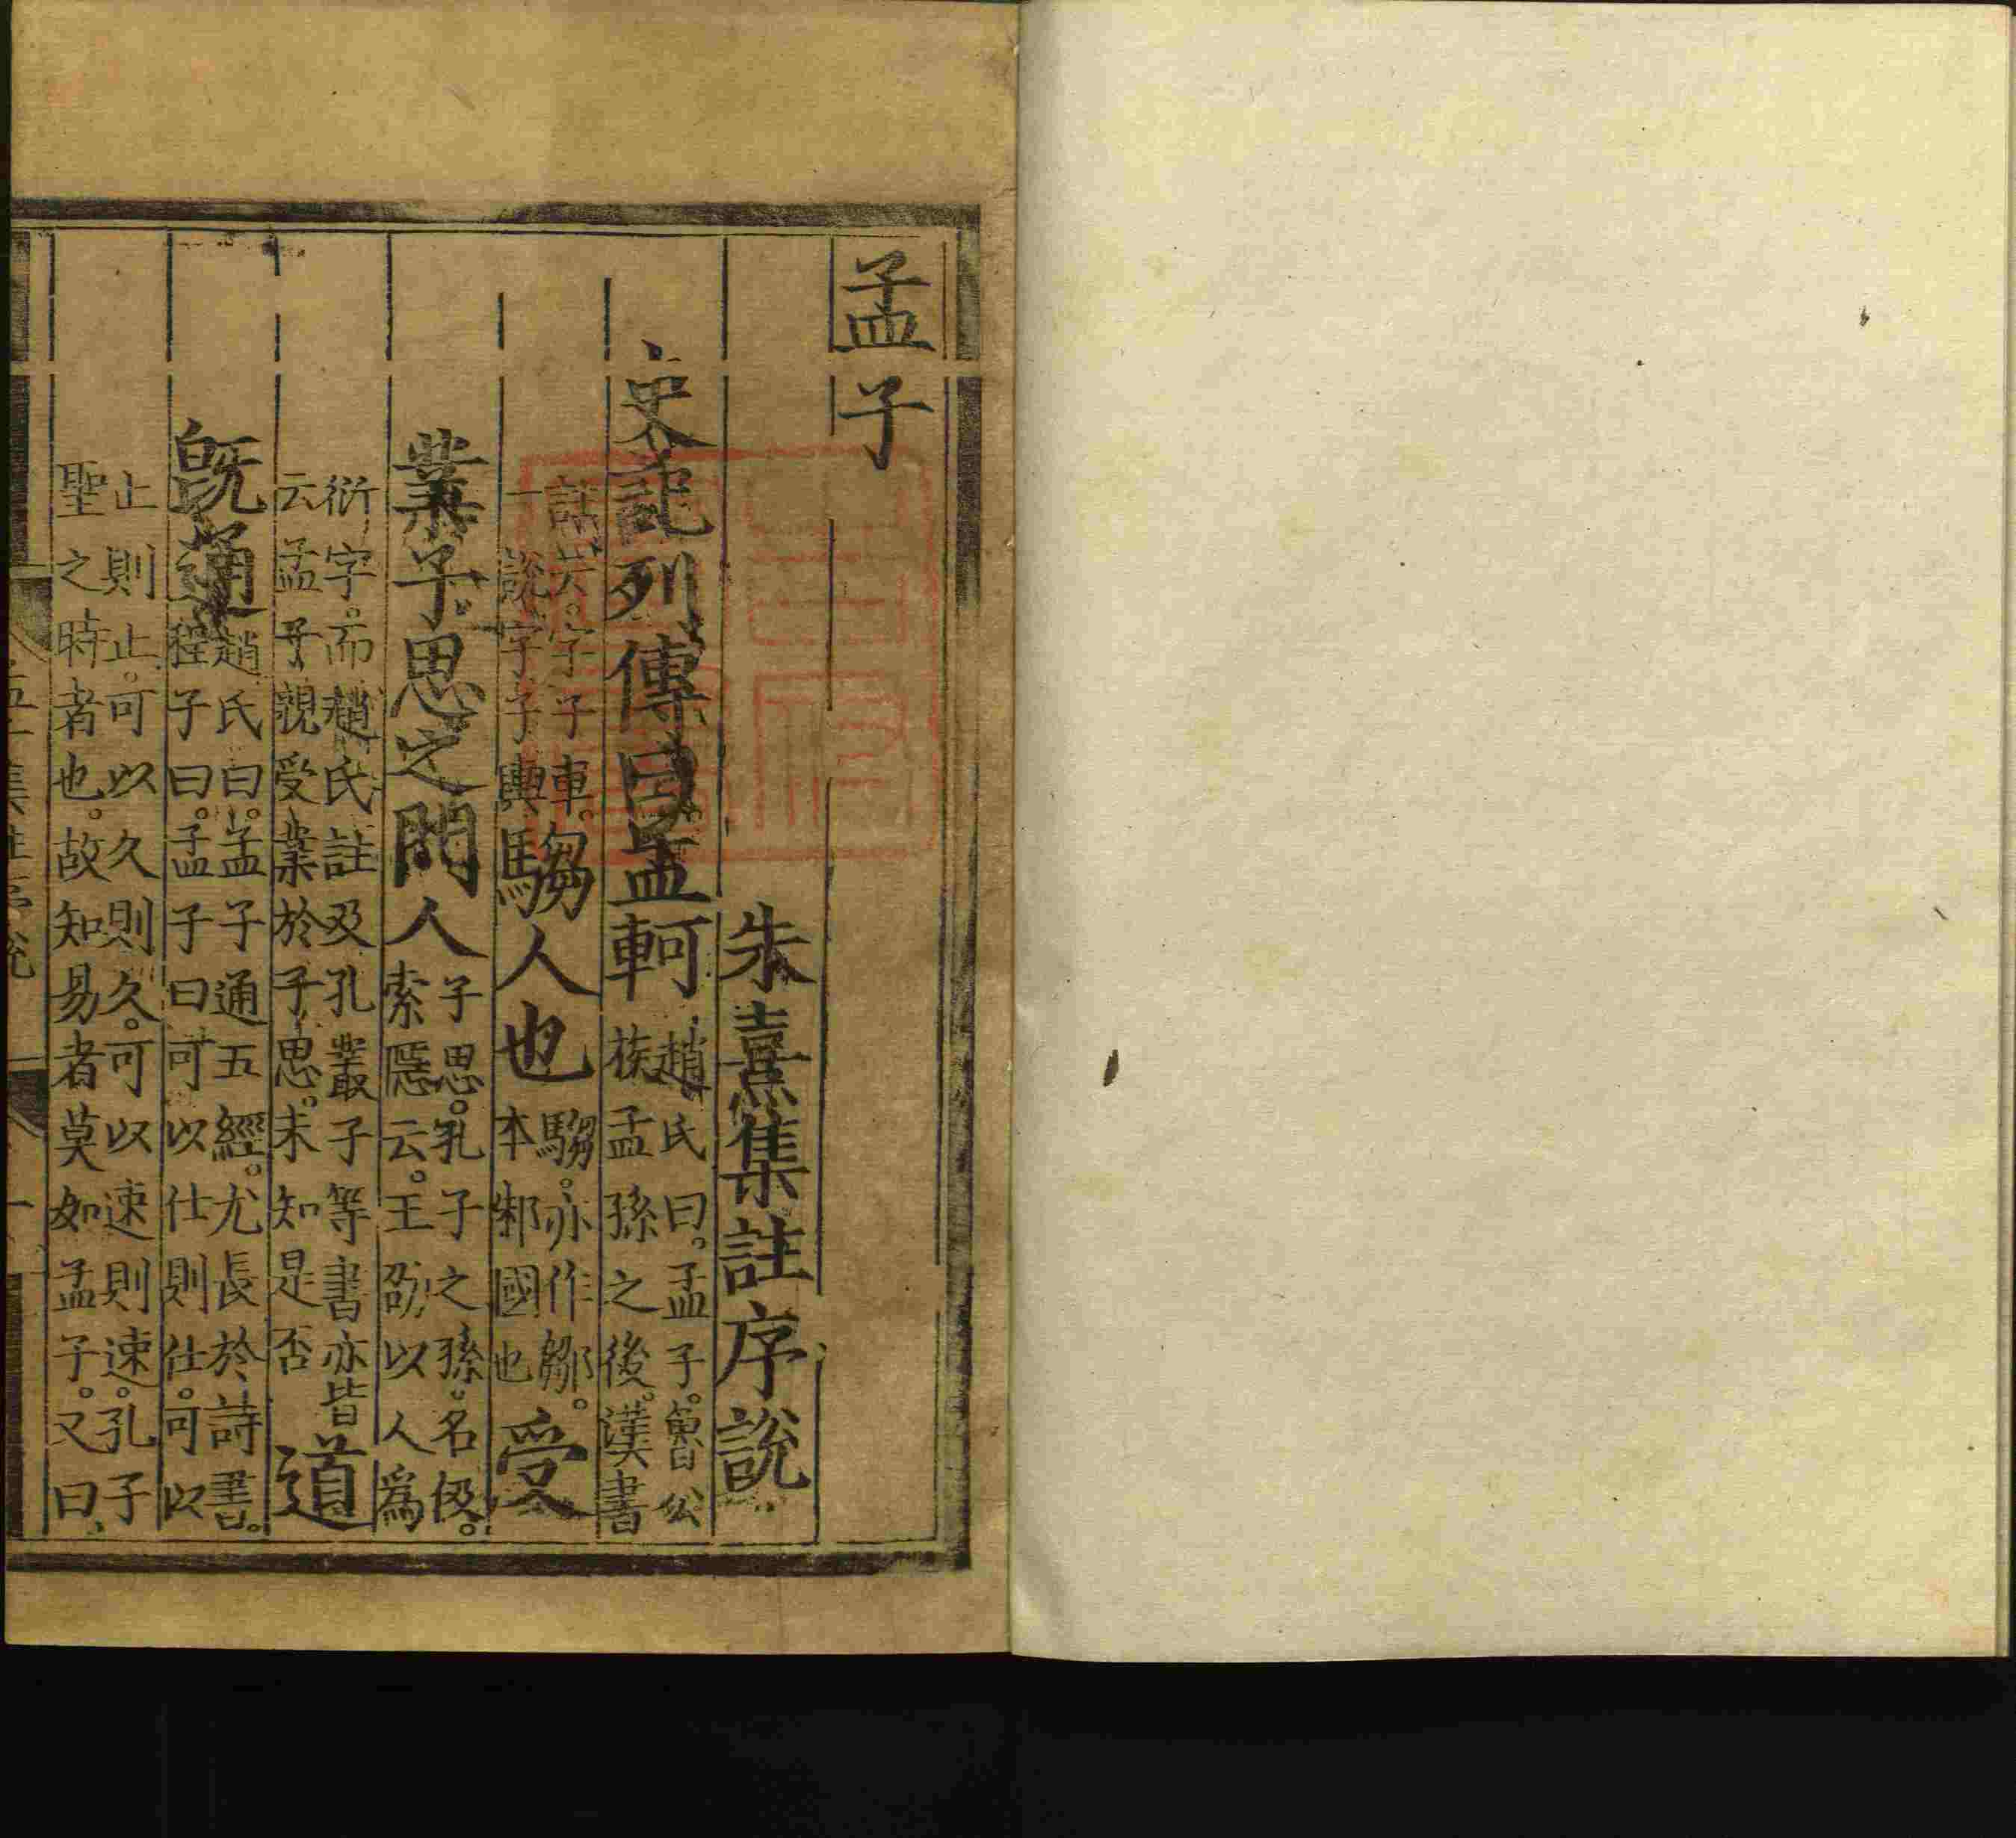 孟子
朱熹集註序說
史記列傳曰孟軻趙氏曰。孟子。魯公族孟孫之後。漢書
註云。字子車。一說字子輿騶人也騶。亦作鄒。本邾國也受
業子思之門人子思。孔子之孫。名伋。索隱云。王劭以人爲
衍字。而趙氏註及孔叢子等書亦皆云孟子親受業於子思。未知是否道
既通趙氏曰。孟子通五經。尤長於詩書。程子曰。孟子曰可以仕則仕。可以
止則止。可以久則久。可以速則速。孔子聖之時者也。故知易者莫如孟子。又曰